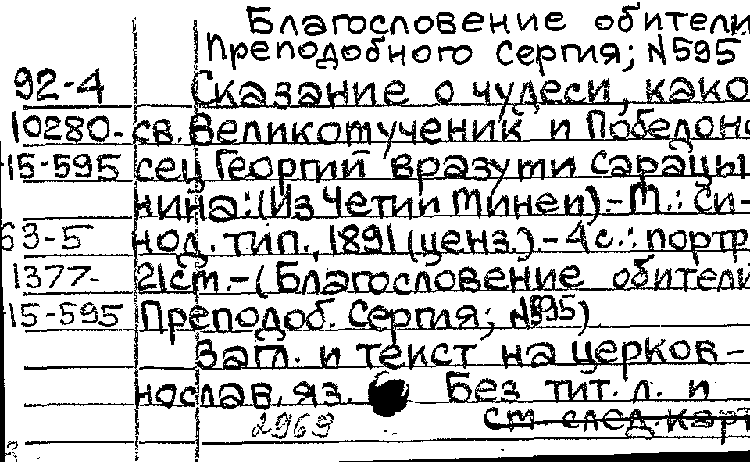 Благословение обители
Преподобного Сергия; N595
92-4 Сказание о чудеси, како
10280- св. Великомученик и Победоно
15-595 сец Георгий вразуми Сарацы
нина: (Из Четии Минеи).-М.: Си-
63-5 нод. тип., 1891 (ценз.).- 4 с.: портр
1377- 21см.-(Благословение обители
15-595 Преподоб. Сергия; N595)
Загл. и текст на церков-
нослав. яз. Без тит. л. и
2969 см. след. карт